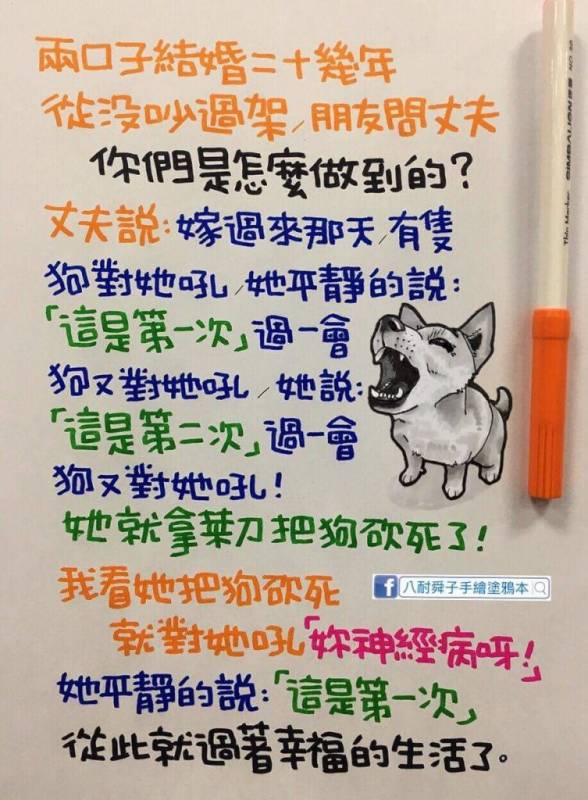 兩口子結婚二十幾年
從沒吵過架/朋友問丈夫
你們是怎麼做到的?
丈夫說:嫁過來那天/有隻
狗對她吼/她平靜的說:
「這是第一次」過一會
狗又對她吼/她說:
「這是第二次」過一會
狗又對她吼!
她就拿菜刀把狗砍死了!
我看她把狗砍死
就對她吼「妳神經病呀!」
她平靜的說:「這是第一次」
從此就過著幸福的生活了。
f 八耐舜子手繪塗鴉本
SIMBALION